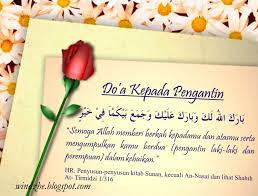 Do'a Kepada Pengantin
بَارَكَ اللهُ لَكَ وَبَارَكَ عَلَيْكَ وَجَمَعَ بَيْنَكُمَا فِيْ خَيْرٍ
"Semoga Allah memberi berkah kepadamu dan atasmu serta
mengumpulkan kamu berdua (pengantin laki-laki dan
perempuan) dalam kebaikan."
HR. Penyusun-penyusun kitab Sunan, kecuali An-Nasai dan lihat Shahih
At- Tirmidzi 1/316
winezjie.blogspot.com